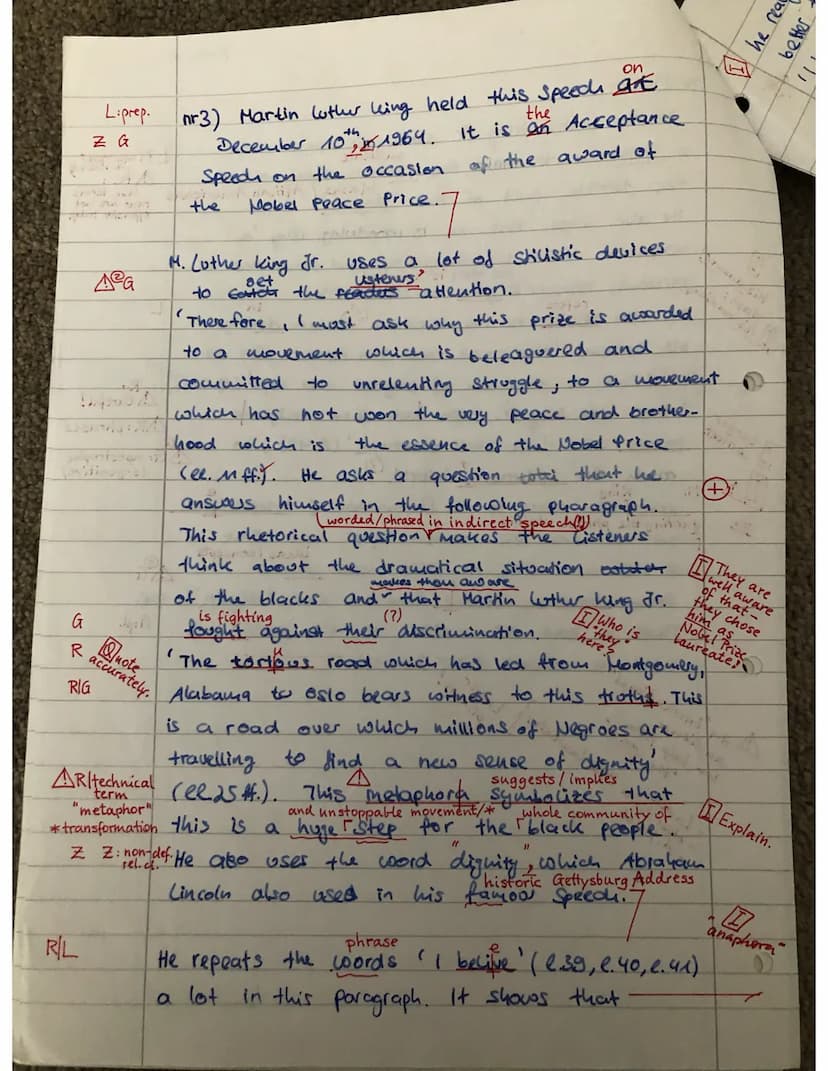 he rea
better
on
L:prep. nr3) Martin Luther King held this speech at
the
Z G December 10th, in 1964. It is an Acceptance
Speech on the occasion of the award of
the Nobel Peace Price.
M. Luther King Jr. uses a lot of stilistic devices
get listeners'
② G to catch the readers attention.
'Therefore, I must ask why this prize is awarded
to a movement which is beleaguered and
committed to unrelenting struggle, to a movement
which has not won the very peace and brother-
hood which is the essence of the Nobel Price
(ll. 11 ff.). He asks a question that he
answers himself in the following pharagraph.
worded/phrased in indirect speech(!)
This rhetorical question makes the listeners
think about the dramatical situation
makes them aware
of the blacks and that Martin Luther King Jr.
I They are well aware of that – they chose him as Nobel Prize Laureate!
is fighting (?)
G fought against their discrimination.
I Who is "they" here?
R Q uote accurately. 'The torious road which has led from Montgomery,
R/G Alabama to Oslo bears witness to this truths. This
is a road over which millions of Negroes are
travelling to find a new sense of dignity'
suggests/implies
R/technical term "metaphor" (ll. 25 ff.). This metaphora symbolizes that
and unstoppable movement/* whole community of
*transformation this is a huge step for the black people.
I Explain.
Z Z: non-def. rel. cl. He also uses the word "dignity", which Abraham
historic Gettysburg Address
Lincoln also used in his famous speech.
I "anaphora"
phrase e
R/L He repeats the words 'I belive' (l.39, l.40, l.41)
a lot in this paragraph. It shows that